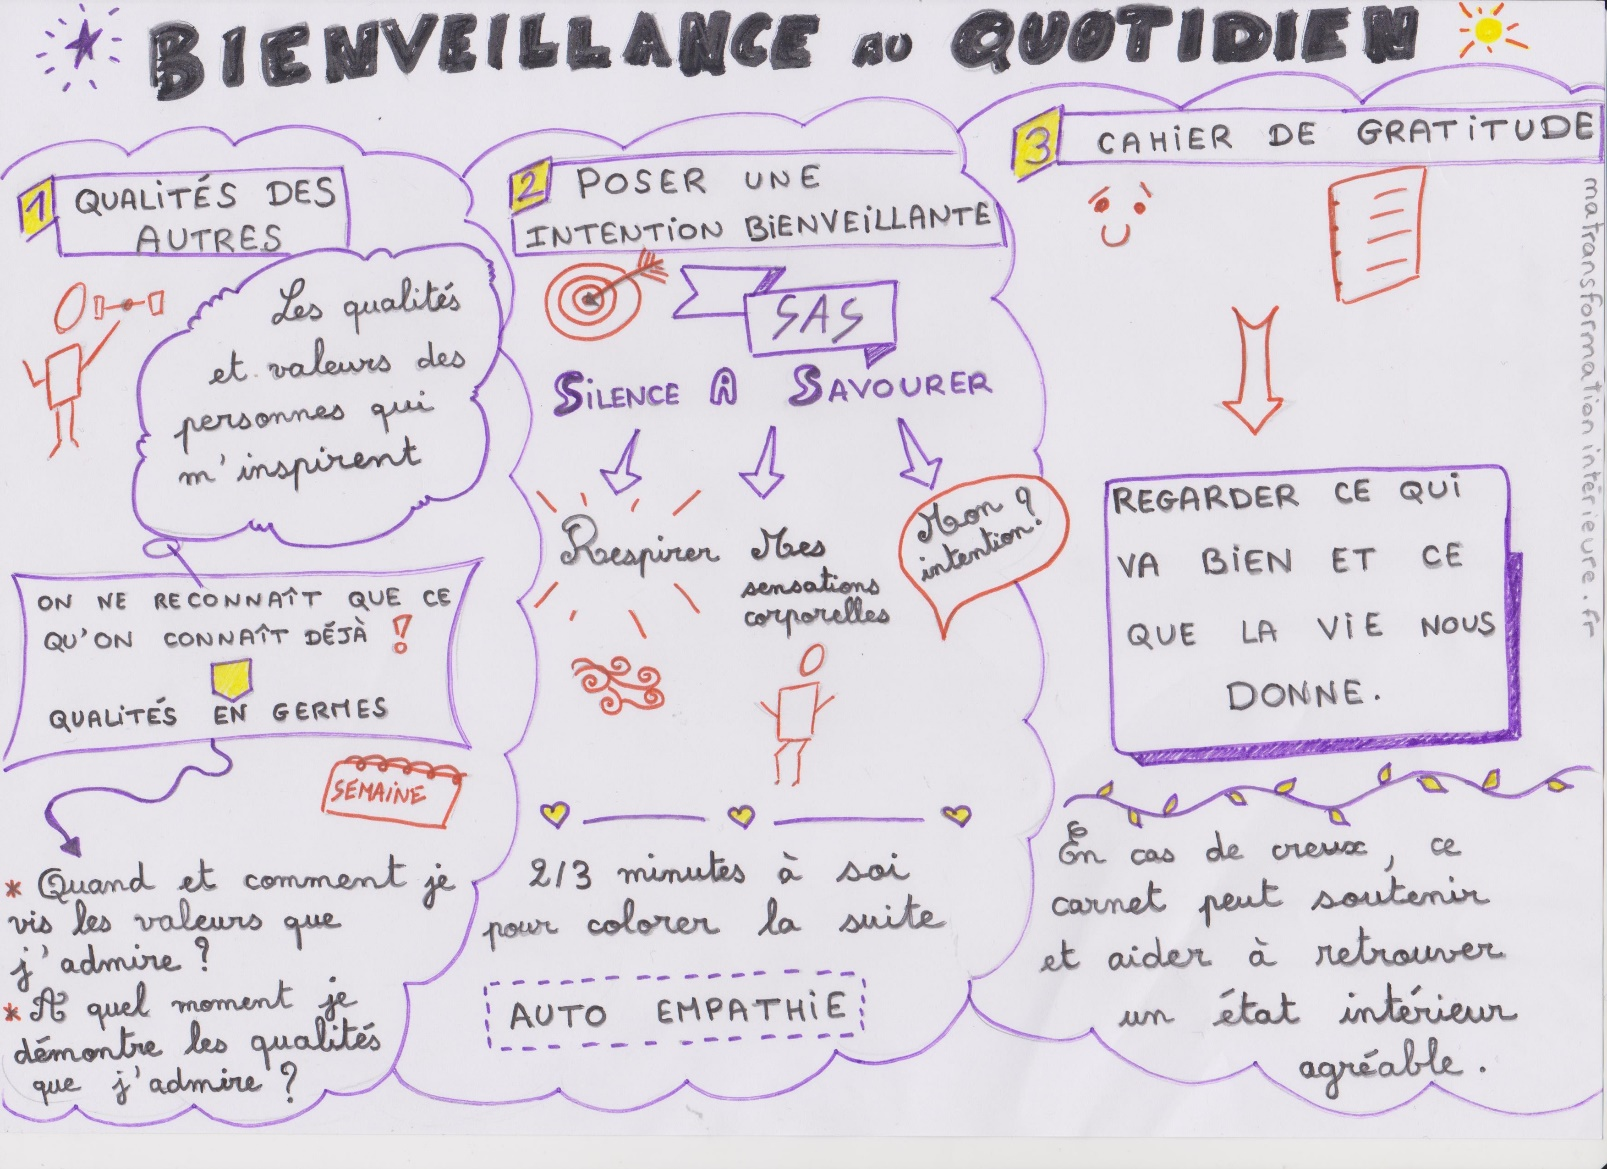 BIENVEILLANCE AU QUOTIDIEN
1 QUALITÉS DES
AUTRES
Les qualités
et valeurs des
personnes qui
m'inspirent
ON NE RECONNAÎT QUE CE
QU'ON CONNAÎT DÉJÀ !
QUALITÉS EN GERMES
SEMAINE
* Quand et comment je
vis les valeurs que
j'admire ?
* A quel moment je
démontre les qualités
que j'admire ?
2 POSER UNE
INTENTION BIENVEILLANTE
SAS
SILENCE A SAVOURER
Respirer
Mes
sensations
corporelles
Mon
intention ?
2/3 minutes à soi
pour colorer la suite
AUTO EMPATHIE
3 CAHIER DE GRATITUDE
REGARDER CE QUI
VA BIEN ET CE
QUE LA VIE NOUS
DONNE.
En cas de creux, ce
carnet peut soutenir
et aider à retrouver
un état intérieur
agréable.
matransformationintérieure.fr